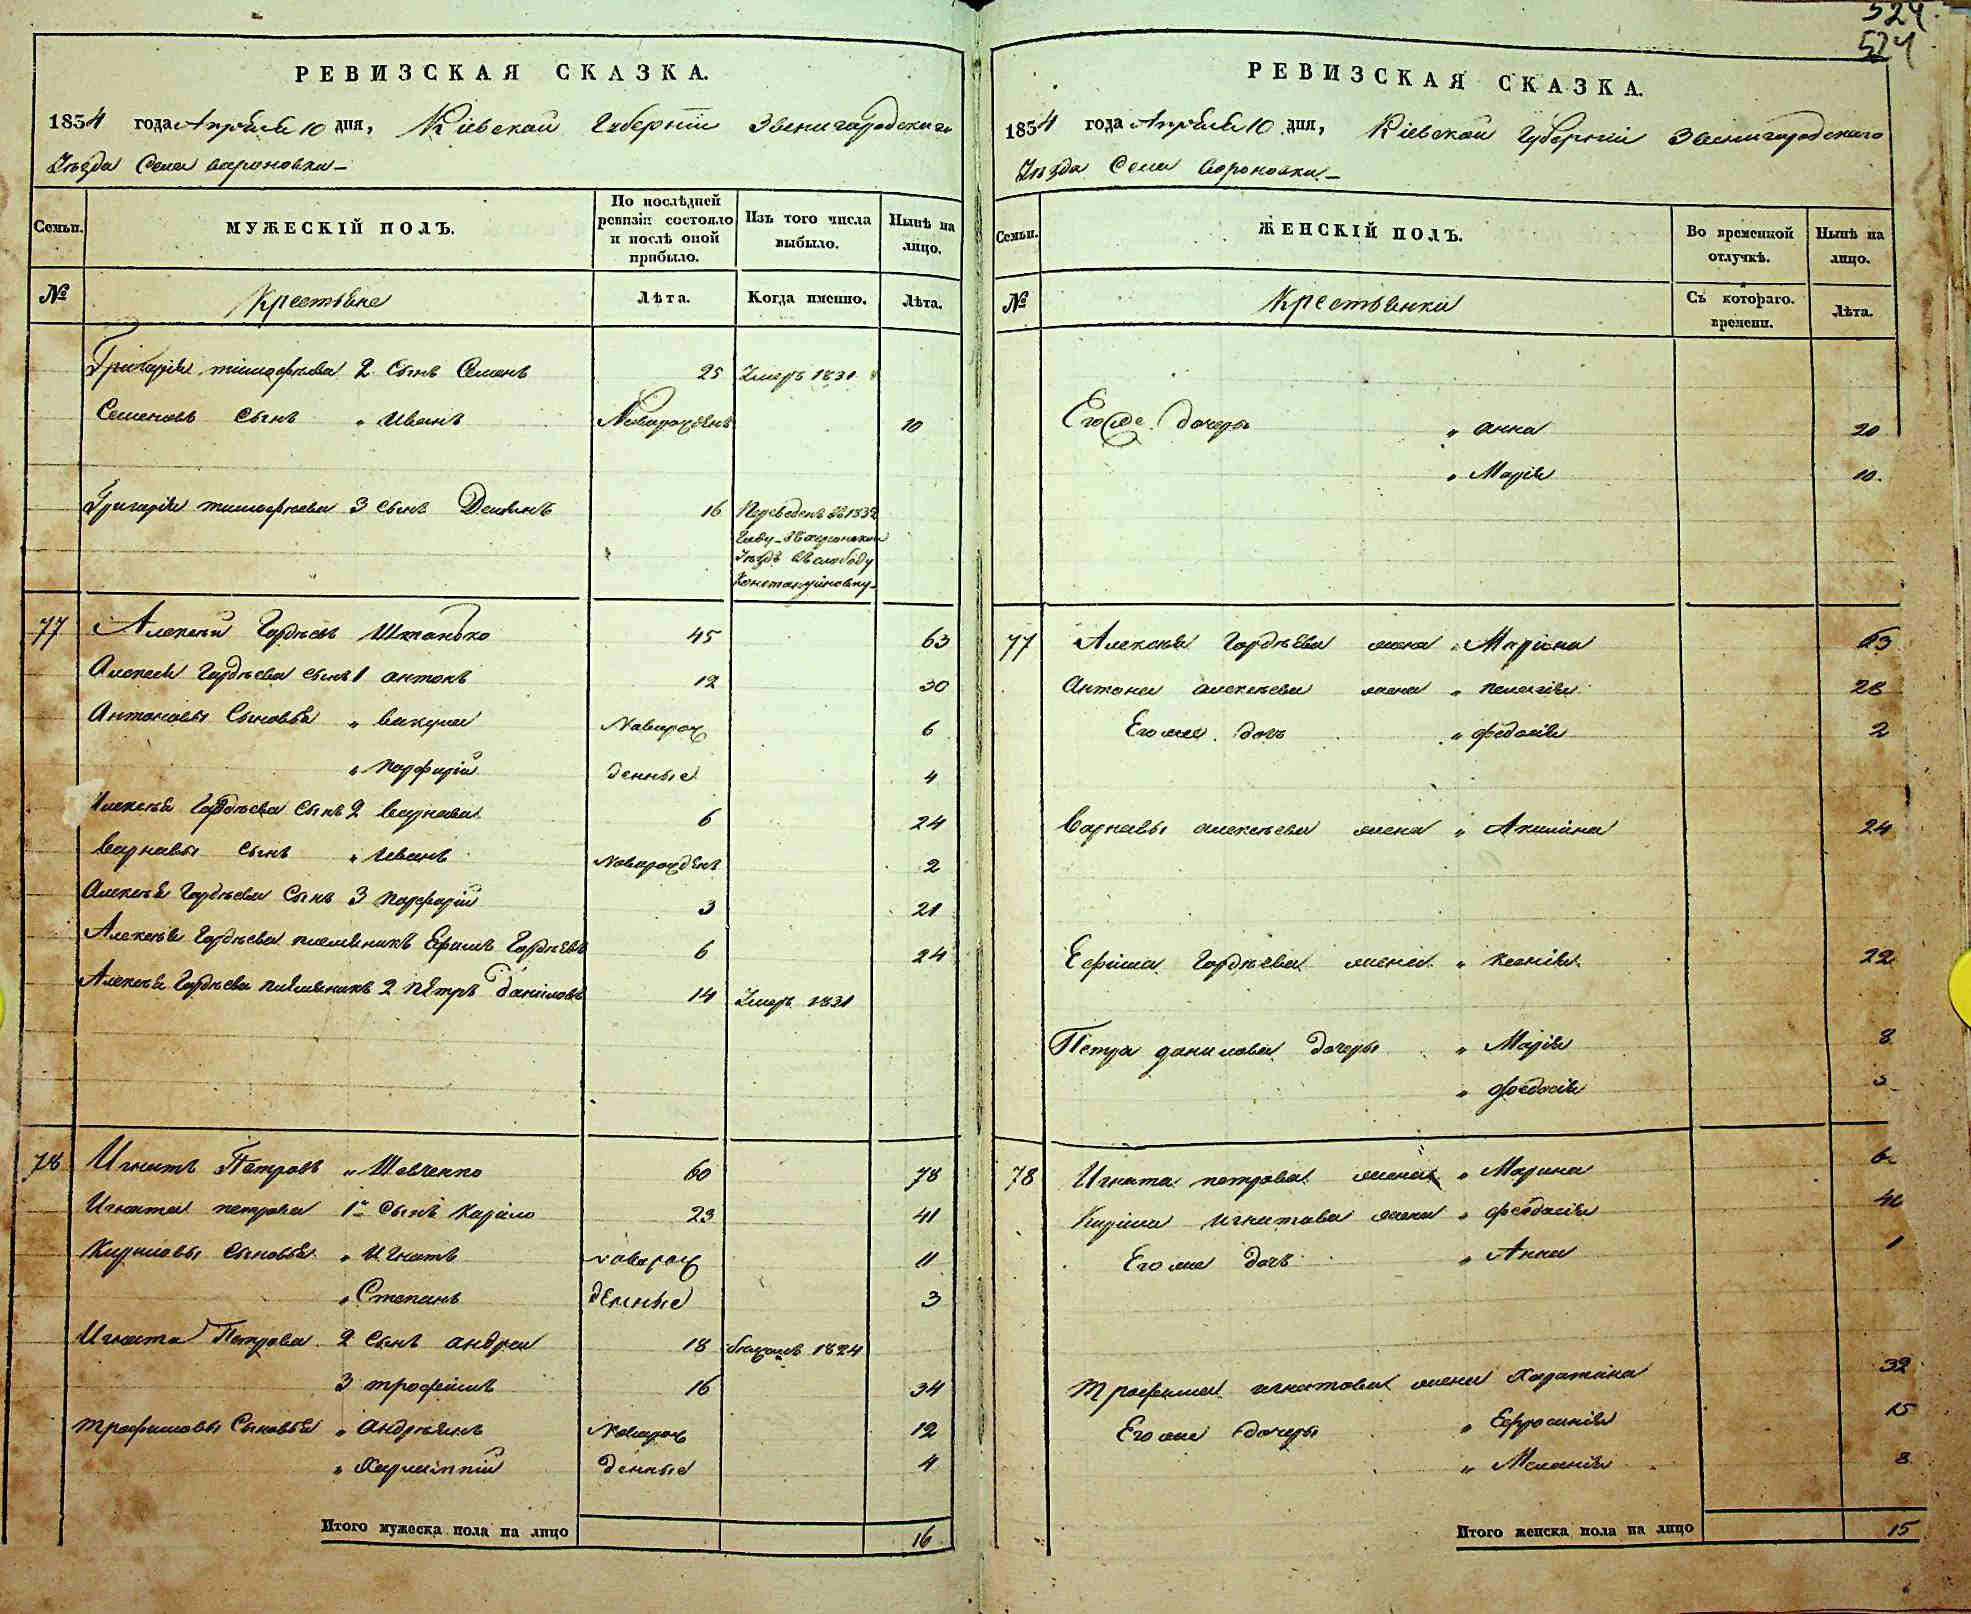 524.
524
РЕВИЗСКАЯ СКАЗКА.
1834 года Апреля 10 дня, Кіевской Губерніи Звенигородскаго
Уѣзда Села вороновки
Семьи.
МУЖЕСКІЙ ПОЛЪ.
По послѣдней ревизіи состояло и послѣ оной прибыло.
Изъ того числа выбыло.
Нынѣ на лицо.
№
Крестьяне
Лѣта.
Когда именно.
Лѣта.
Григорія тимофеева 2 сынъ Семенъ 25 Умеръ 1831
Семеновъ сынъ „ Иванъ Новорожденъ 10
Григорія тимофеева 3 сынъ 16 Переведенъ въ 1832
Году
Уѣздъ въ слободу
Константиновку
77 Алексѣй Гордѣевъ Штанько 45 63
Алексея Гордѣева сынъ 1 антонъ 12 30
Антоновы Сыновья „ вакула Новорож 6
„ порфирій денные 4
Алексѣя Гордѣева сынъ 2 варнава 6 24
варнавы сынъ „ Иванъ Новорожденъ 2
Алексѣя Гордѣева Сынъ 3 порфирій 3 21
Алексѣя Гордѣева племяникъ Ефимъ Гордѣевъ 6 24
Алексѣя Гордѣева племяникъ 2 пѣтръ Даниловъ 14 Умеръ 1831
78 Игнатъ Петровъ „ Шевченко 60 78
Игната петрова 1й сынъ Кирило 23 41
Кириловы сыновья „ Игнатъ новорож 11
„ Степанъ денные 3
Игната Петрова 2 сынъ андрей 18 1824
3 трофимъ 16 34
трофимовы Сыновья „ андрѣянъ Новорож 12
„ денные 4
Итого мужеска пола на лицо 16
РЕВИЗСКАЯ СКАЗКА.
1834 года Апреля 10 дня, Кіевской Губерніи Звенигородскаго
Уѣзда Села вороновки
Семьи.
ЖЕНСКІЙ ПОЛЪ.
Во временной отлучкѣ.
Нынѣ на лицо.
№
Крестьянки
Съ котораго времени.
Лѣта.
Его же дочеры „ анна 20
„ Марія 10.
77 Алексѣя Гордѣева жена „ Маріана 63
Антона алексѣева жена „ пелагія 28
Его же дочь „ федосія 2
варнавы алексѣева жена „ Акилина 24
Ефима Гордѣева жена „ ксенія 22
Петра данилова дочеры „ Марія 8
„ федосія
78 Игната петрова жена „ Марина
Кирила игнатова жена „ феодосія
Его же дочь „ Анна 1
трофима игнатова жена 32
Его же дочеры „ Ефросинія 15
„ Меланія 8
Итого женска пола на лицо 15